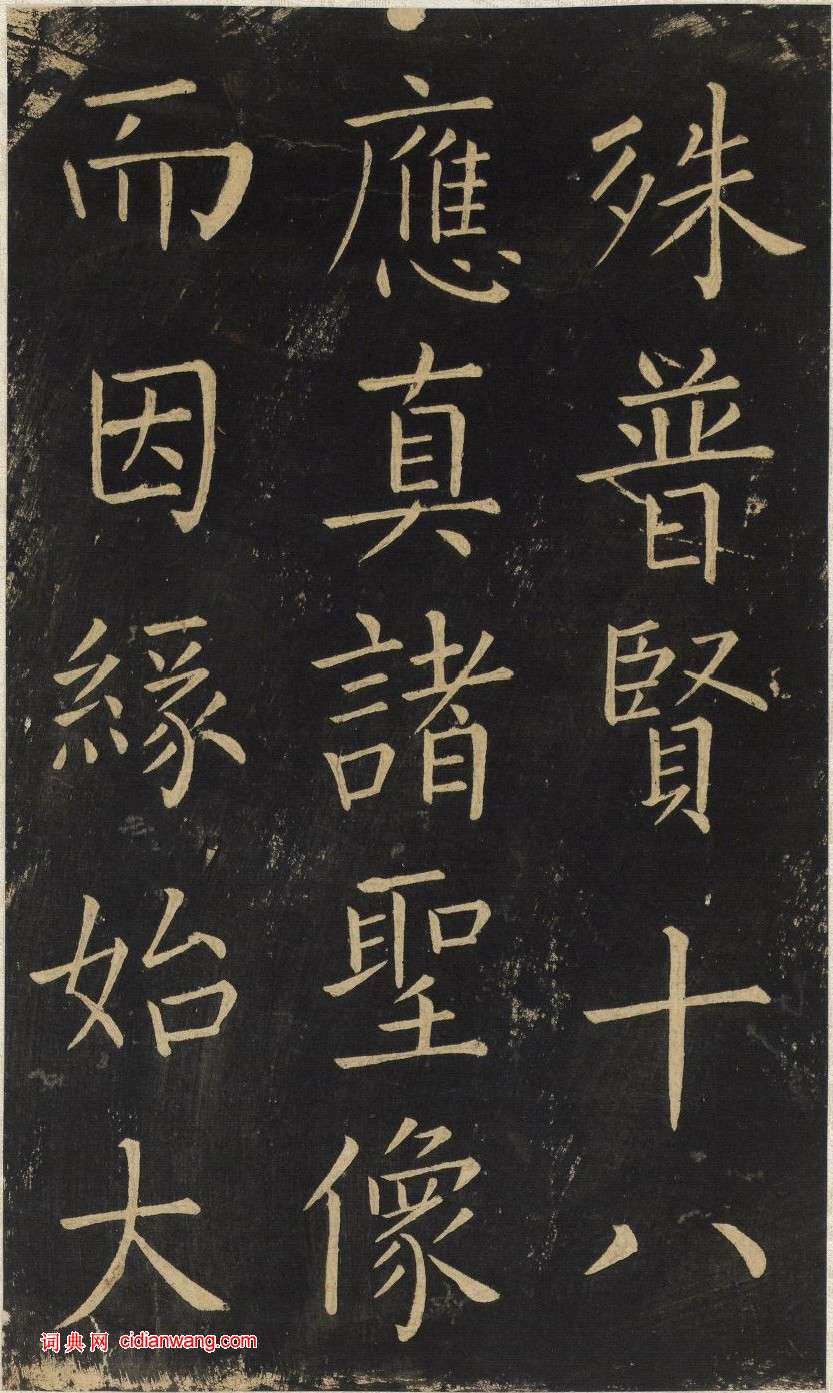 殊普賢十八
應真諸聖像
而因緣始大
词典网 cidianwang.com